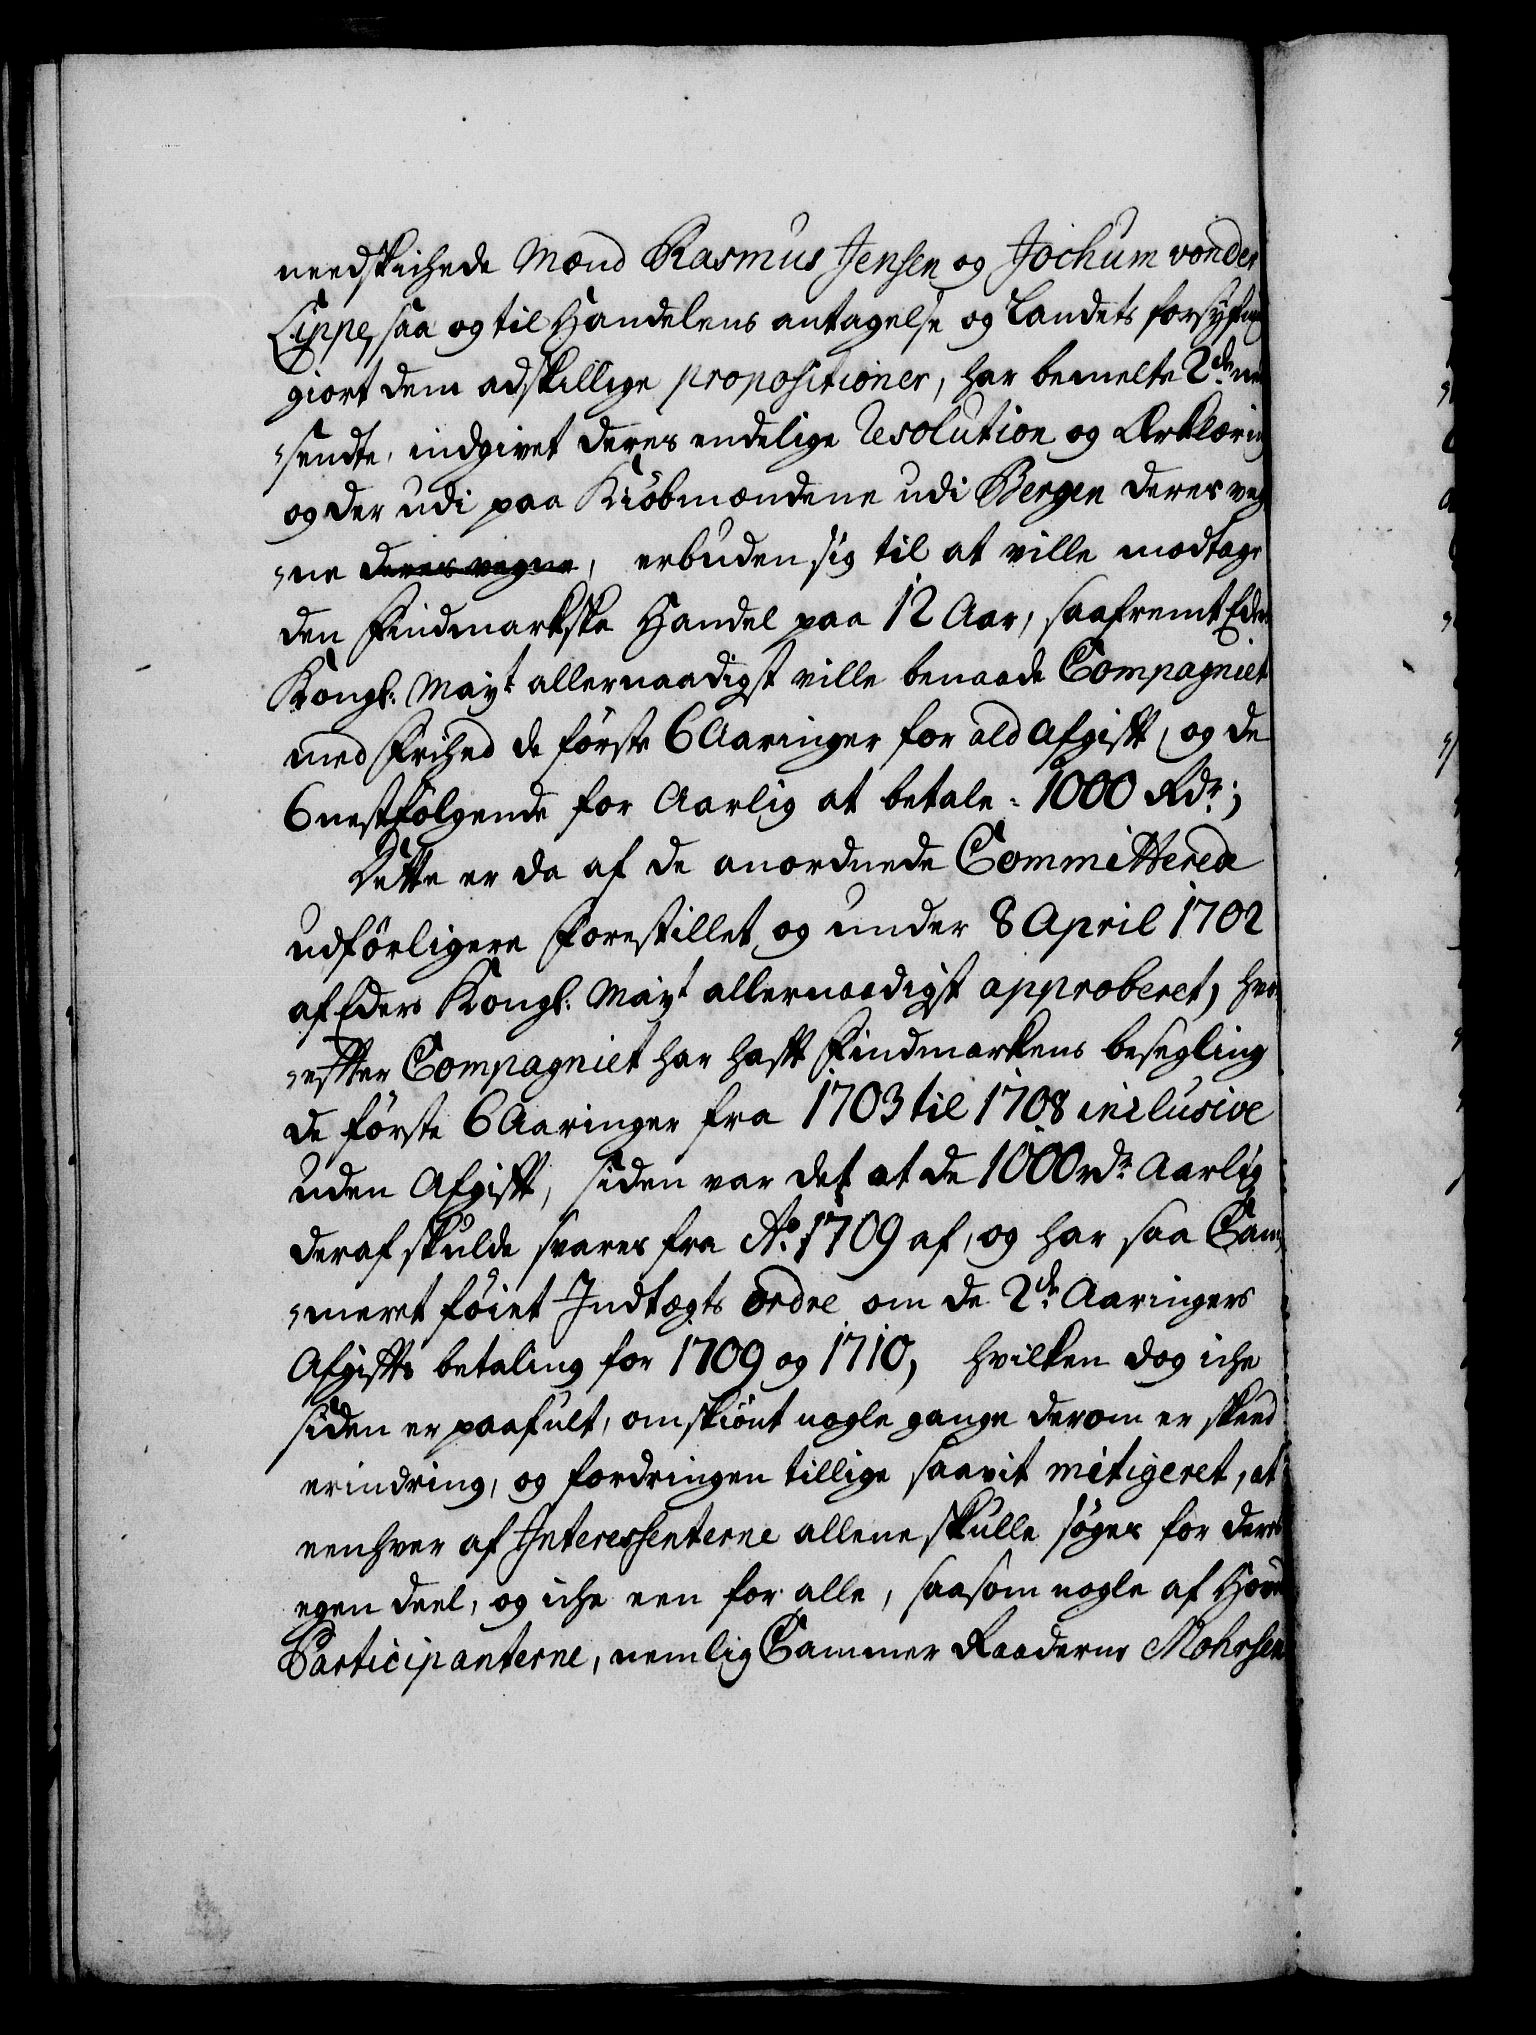 needskichede Mænd Rasmus Jensen og Jochum vonder
Lippe, saa og til Handelens antagelse og Landets forsyfning
giort dem adskillige propositioner, har bemelte 2de ned¬
¬sendte, indgivet deres endelige Resolution og Erklæring
og der udi paa Kiöbmændene udi Bergen deres veg¬
¬ne deres vegne, erbuden sig til at ville modtage
den Findmarkske Handel paa 12 Aar, saafremt Eders
Kongl: Mayt allernaadigst ville benaade Compagniet
med Frihed de förste 6 Aaringer for ald Afgift, og de
6 nestfölgende for Aarlig at betale = 1000 Rdr;
Dette er da af de anordnede Committerede
udförligere Forestillet, og under 8 April 1702
af Eders Kongl: Mayt allernaadigst approberet, hvor¬
¬effter Compagniet har hafft Findmarkens besegling
de förste 6 Aaringer fra 1703 til 1708 inclusive
uden Afgifft, siden var det at de 1000 rdr Aarlig
deraf skulde svares fra Ao. 1709 af, og har saa Cam¬
¬meret föiet Indtægts ordre om de 2de Aaringers
Afgiffts betaling for 1709 og 1710, hvilken dog iche
siden er paafult, omskiönt nogle gange derom er skeed
erindring, og fordringen tillige saavit mitigeret, at
eenhver af Interessenterne allene skulle söges for deres
egen deel, og iche een for alle, saasom nogle af Hoved
Participanterne, nemlig Cammer Raaderne Mohrsen